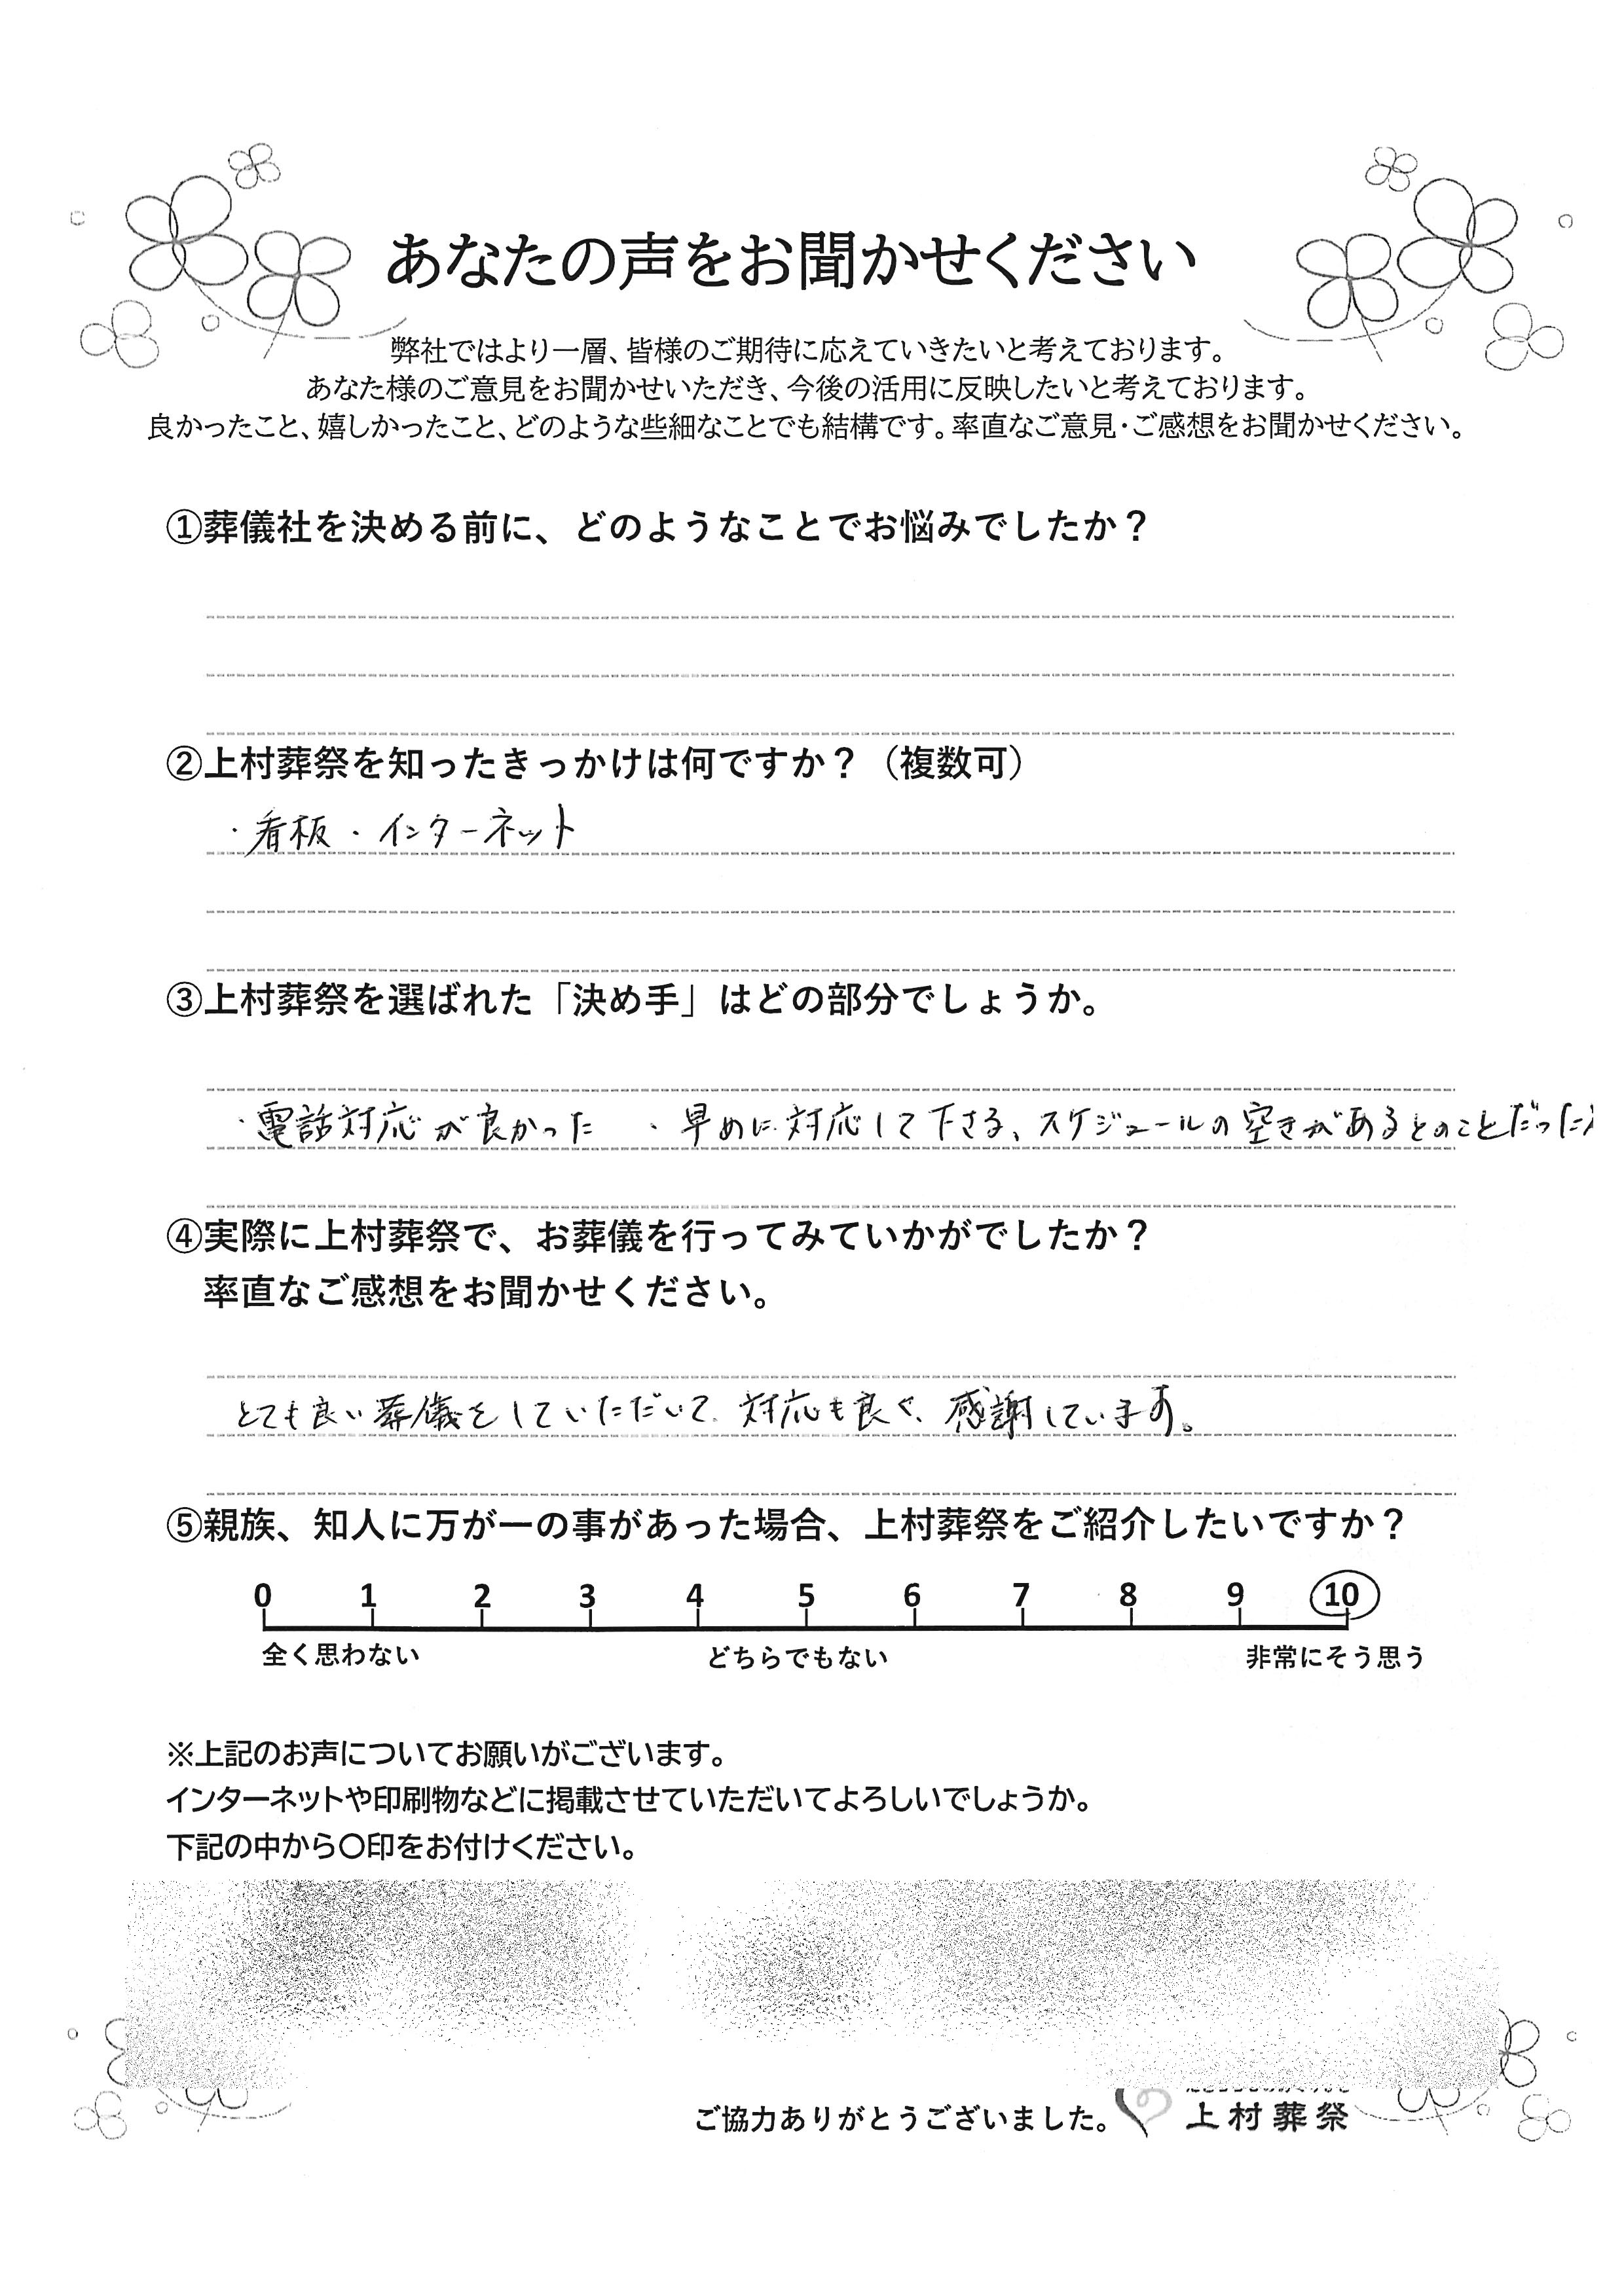 あなたの声をお聞かせください
弊社ではより一層、皆様のご期待に応えていきたいと考えております。
あなた様のご意見をお聞かせいただき、今後の活用に反映したいと考えております。
良かったこと、嬉しかったこと、どのような些細なことでも結構です。率直なご意見・ご感想をお聞かせください。
①葬儀社を決める前に、どのようなことでお悩みでしたか？
②上村葬祭を知ったきっかけは何ですか？（複数可）
・看板・インターネット
③上村葬祭を選ばれた「決め手」はどの部分でしょうか。
・電話対応が良かった ・早めに対応して下さる、スケジュールの空きがあるとのことだった
④実際に上村葬祭で、お葬儀を行ってみていかがでしたか？
率直なご感想をお聞かせください。
とても良い葬儀をしていただいて、対応も良く、感謝しています。
⑤親族、知人に万が一の事があった場合、上村葬祭をご紹介したいですか？
0 1 2 3 4 5 6 7 8 9 10
全く思わない どちらでもない 非常にそう思う
※上記のお声についてお願いがございます。
インターネットや印刷物などに掲載させていただいてよろしいでしょうか。
下記の中から〇印をお付けください。
ご協力ありがとうございました。 上村葬祭